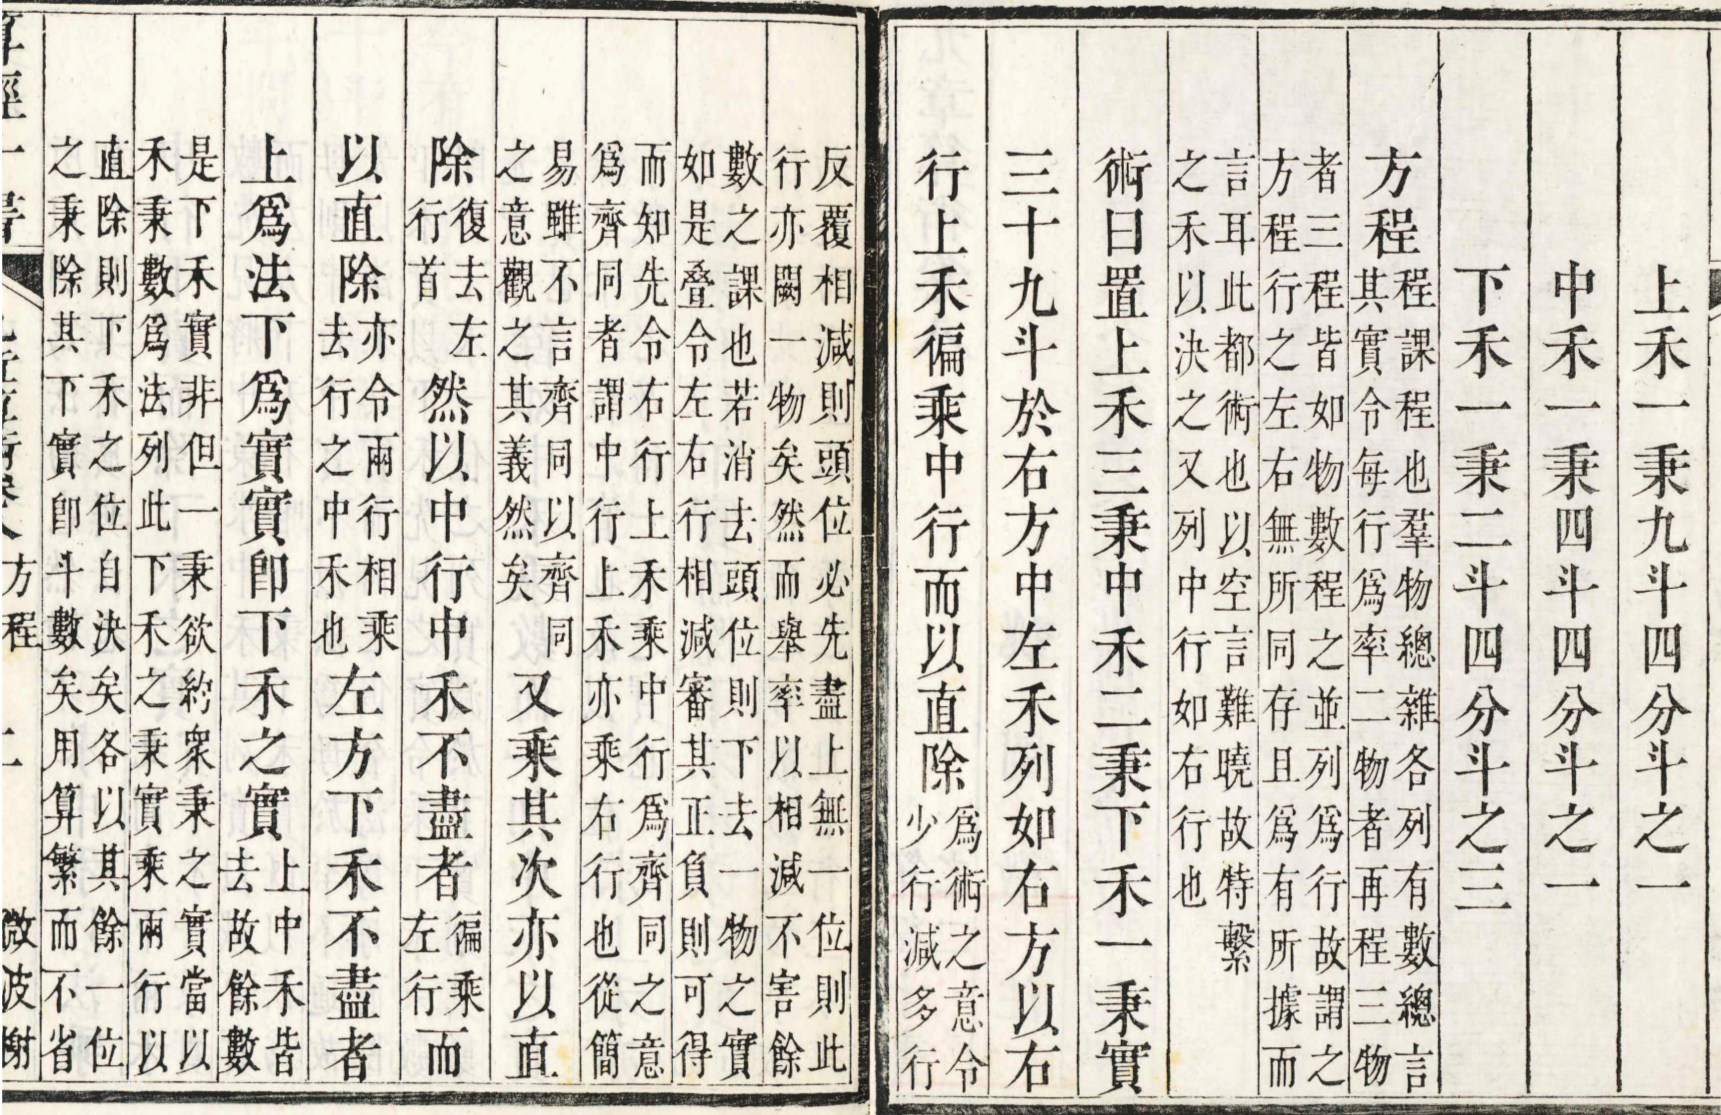 上禾一秉九斗四分斗之一
中禾一秉四斗四分斗之一
下禾一秉二斗四分斗之三
方程程課程也羣物總雜各列有數總言
其實令每行爲率二物者再程三物
者三程皆如物數程之並列爲行故謂之
方程行之左右無所同存且爲有所據而
言耳此都術也以空言難曉故特繫
之禾以決之又列中行如右行也
術曰置上禾三秉中禾二秉下禾一秉實
三十九斗於右方中左禾列如右方以右
行上禾徧乘中行而以直除爲術之意令
少行減多行
反覆相減則頭位必先盡上無一位則此
行亦闕一物矣然而舉率以相減不害餘
數之課也若消去頭位則下去一物之實
如是疊令左右行相減審其正負則可得
而知先令右行上禾乘中行爲齊同之意
爲齊同者謂中行上禾亦乘右行也從簡
易雖不言齊同以齊同
之意觀之其義然矣又乘其次亦以直
除復去左行首然以中行中禾不盡者徧乘左行而
以直除亦令兩行相乘去行之中禾也左方下禾不盡者
上爲法下爲實實卽下禾之實上中禾皆去故餘數
是下禾實非但一秉欲約衆秉之實當以
禾秉數爲法列此下禾之秉實乘兩行以
直除則下禾之位自決矣各以其餘一位
之秉除其下實卽斗數矣用算繁而不省
算經十書 九章算術卷八 方程 二 微波榭